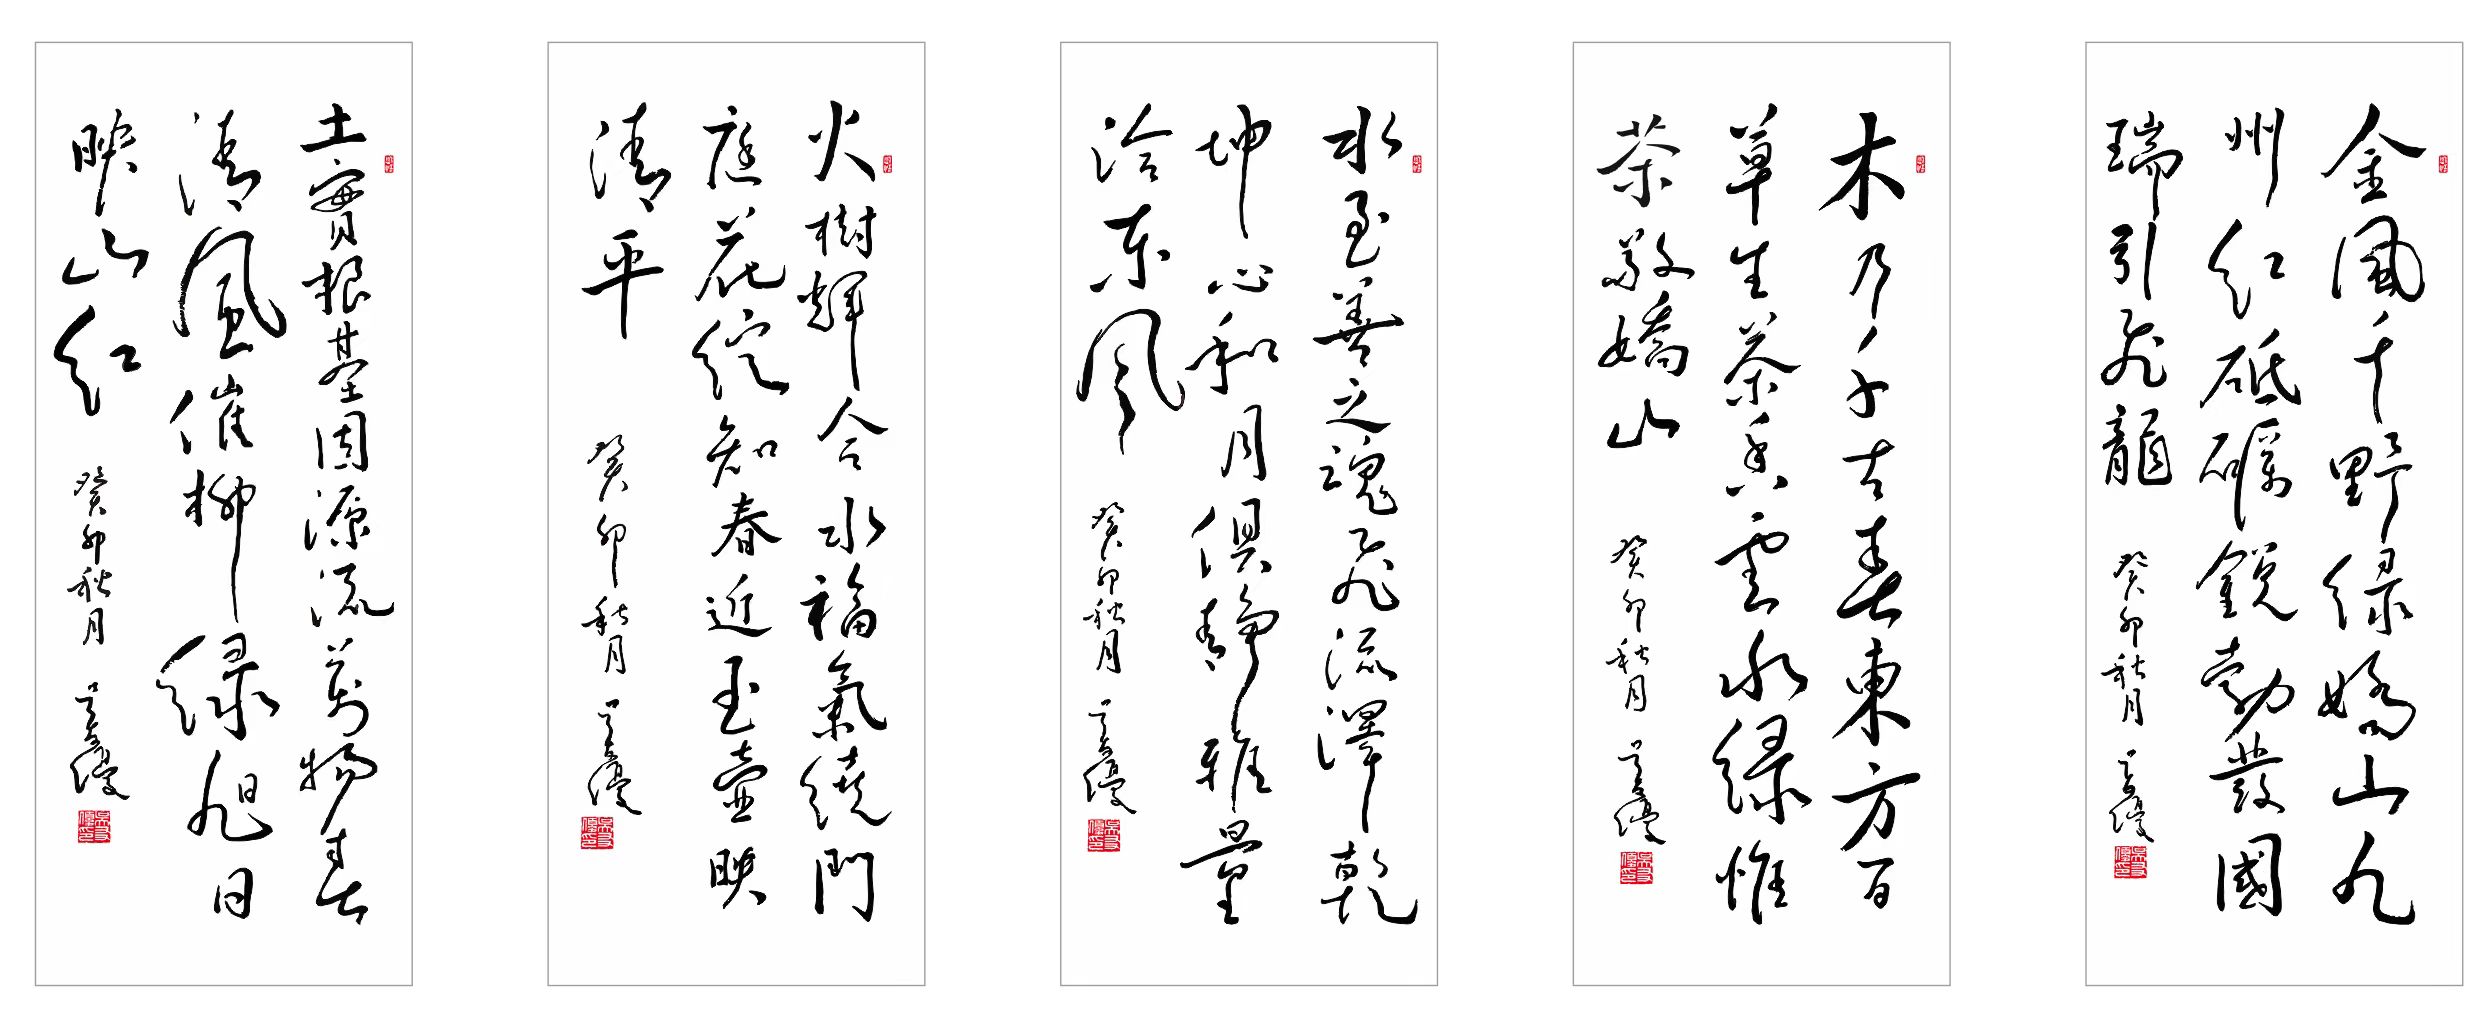 金風千野綠嬌山九
州紅砥礪銳勃發國
瑞引飛龍
癸卯秋月
木乃千古春東方百
草生茶香雲水綠惟
茶敬嬌山
癸卯秋月
水至善之魂飛流澤乾
坤心和月俱靜雅量
洽東風
癸卯秋月
火樹輝合水福氣繞門
庭花綻知春近玉壺映
清平
癸卯秋月
土實根基固源流萬物春
清風催柳綠旭日
映山紅
癸卯秋月